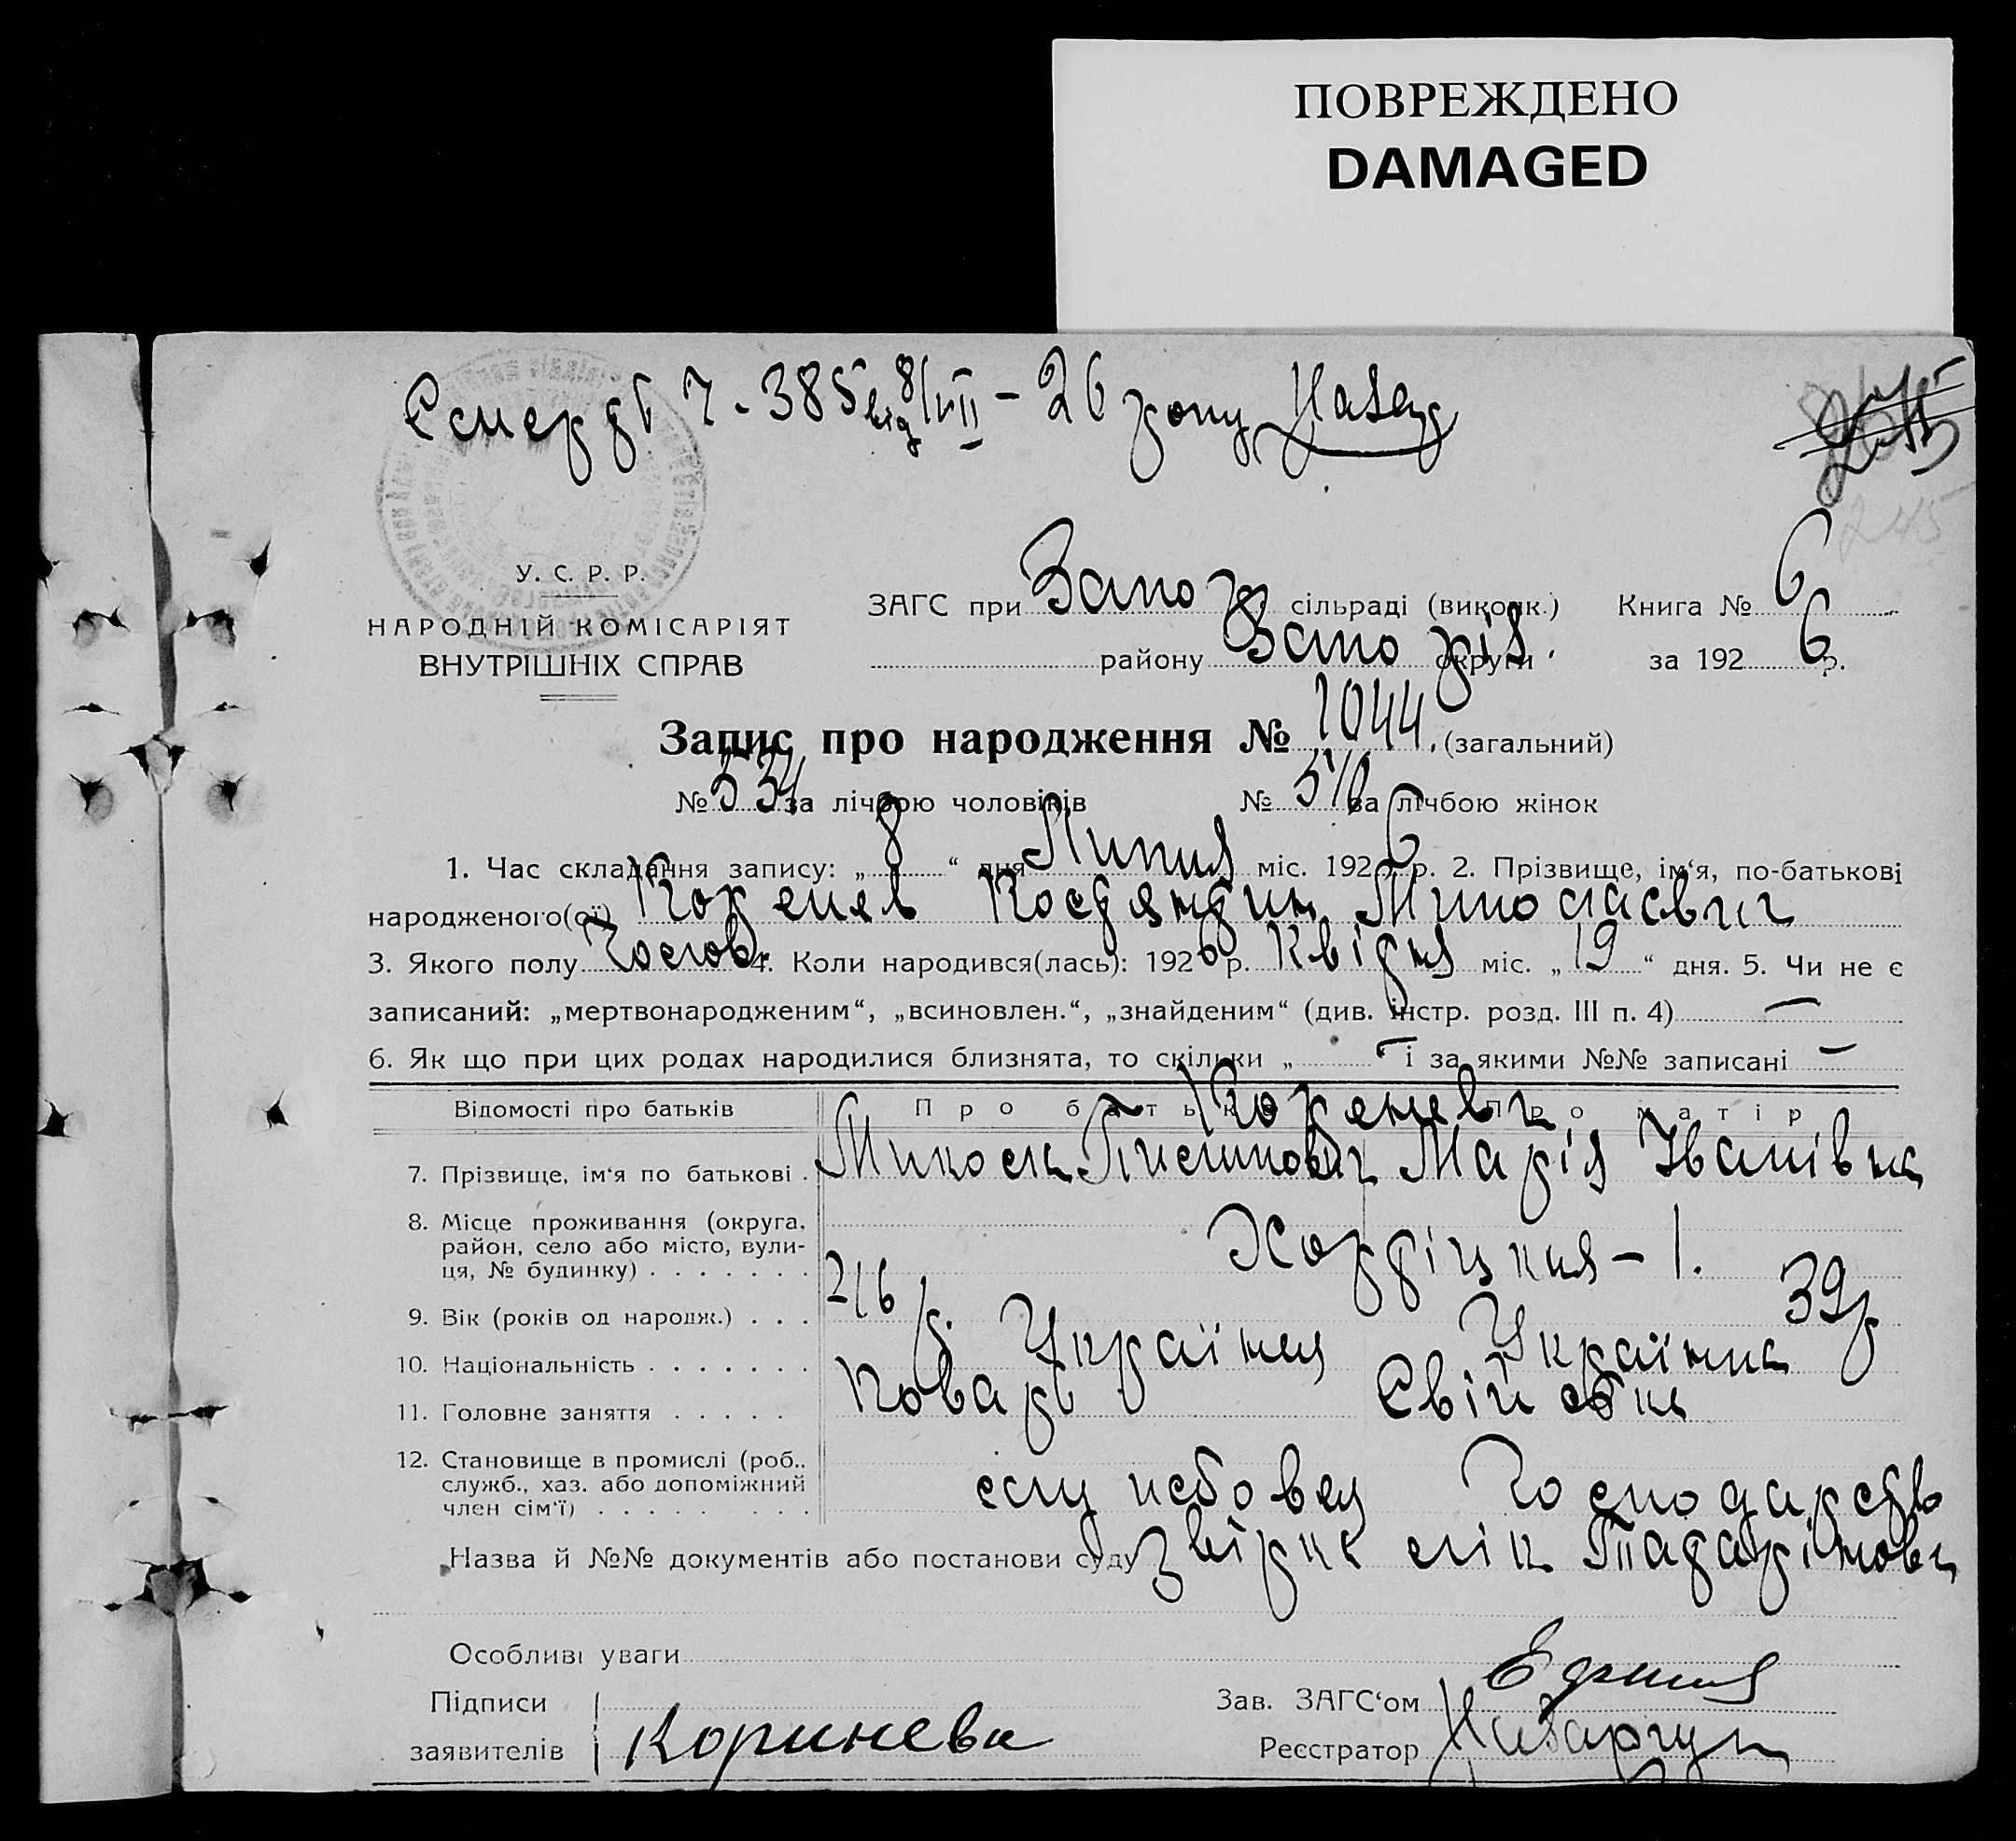 ПОВРЕЖДЕНО
DAMAGED
Смерть Ч. 385 від 8/VII – 26 року
245
У. С. Р. Р.
НАРОДНІЙ КОМІСАРІЯТ
ВНУТРІШНІХ СПРАВ
ЗАГС при Запор сільраді (виконк.) Книга № 6
району Запоріз. округи за 192 6 р.
Запис про народження № 1044. (загальний)
№ 534 за лічбою чоловіків № 510 за лічбою жінок
1. Час складання запису: „ 8 “ дня Липня міс. 192 6 р. 2. Прізвище, ім‘я, по-батькові
народженого(ої) Коренев Костянтин Миколаєвич
3. Якого полу Чолов. 4. Коли народився(лась): 192 6 р. Квітня міс. „ 19 “ дня. 5. Чи не є
записаний: „мертвонародженим“, „всиновлен.“, „знайденим“ (див. інстр. розд. III п. 4) —
6. Як що при цих родах народилися близнята, то скільки „ – “ і за якими №№ записані –
Відомості про батьків Про батька Про матір
Кореневи
7. Прізвище, ім‘я по батькові . Микола Марія Іванівна
8. Місце проживання (округа,
район, село або місто, вули-
ця, № будинку) . . . . . . . Хортіцкия – 1.
9. Вік (років од народж.) . . . 39 р
10. Національність . . . . . . . Українец Українка
11. Головне заняття . . . . . Коваль
12. Становище в промислі (роб..
служб., хаз. або допоміжний
член сім‘ї) . . . . . . . . . службовец Господарство
Назва й №№ документів або постанови суду
Особливі уваги
Підписи Зав. ЗАГС‘ом
заявителів Коринева Реєстратор